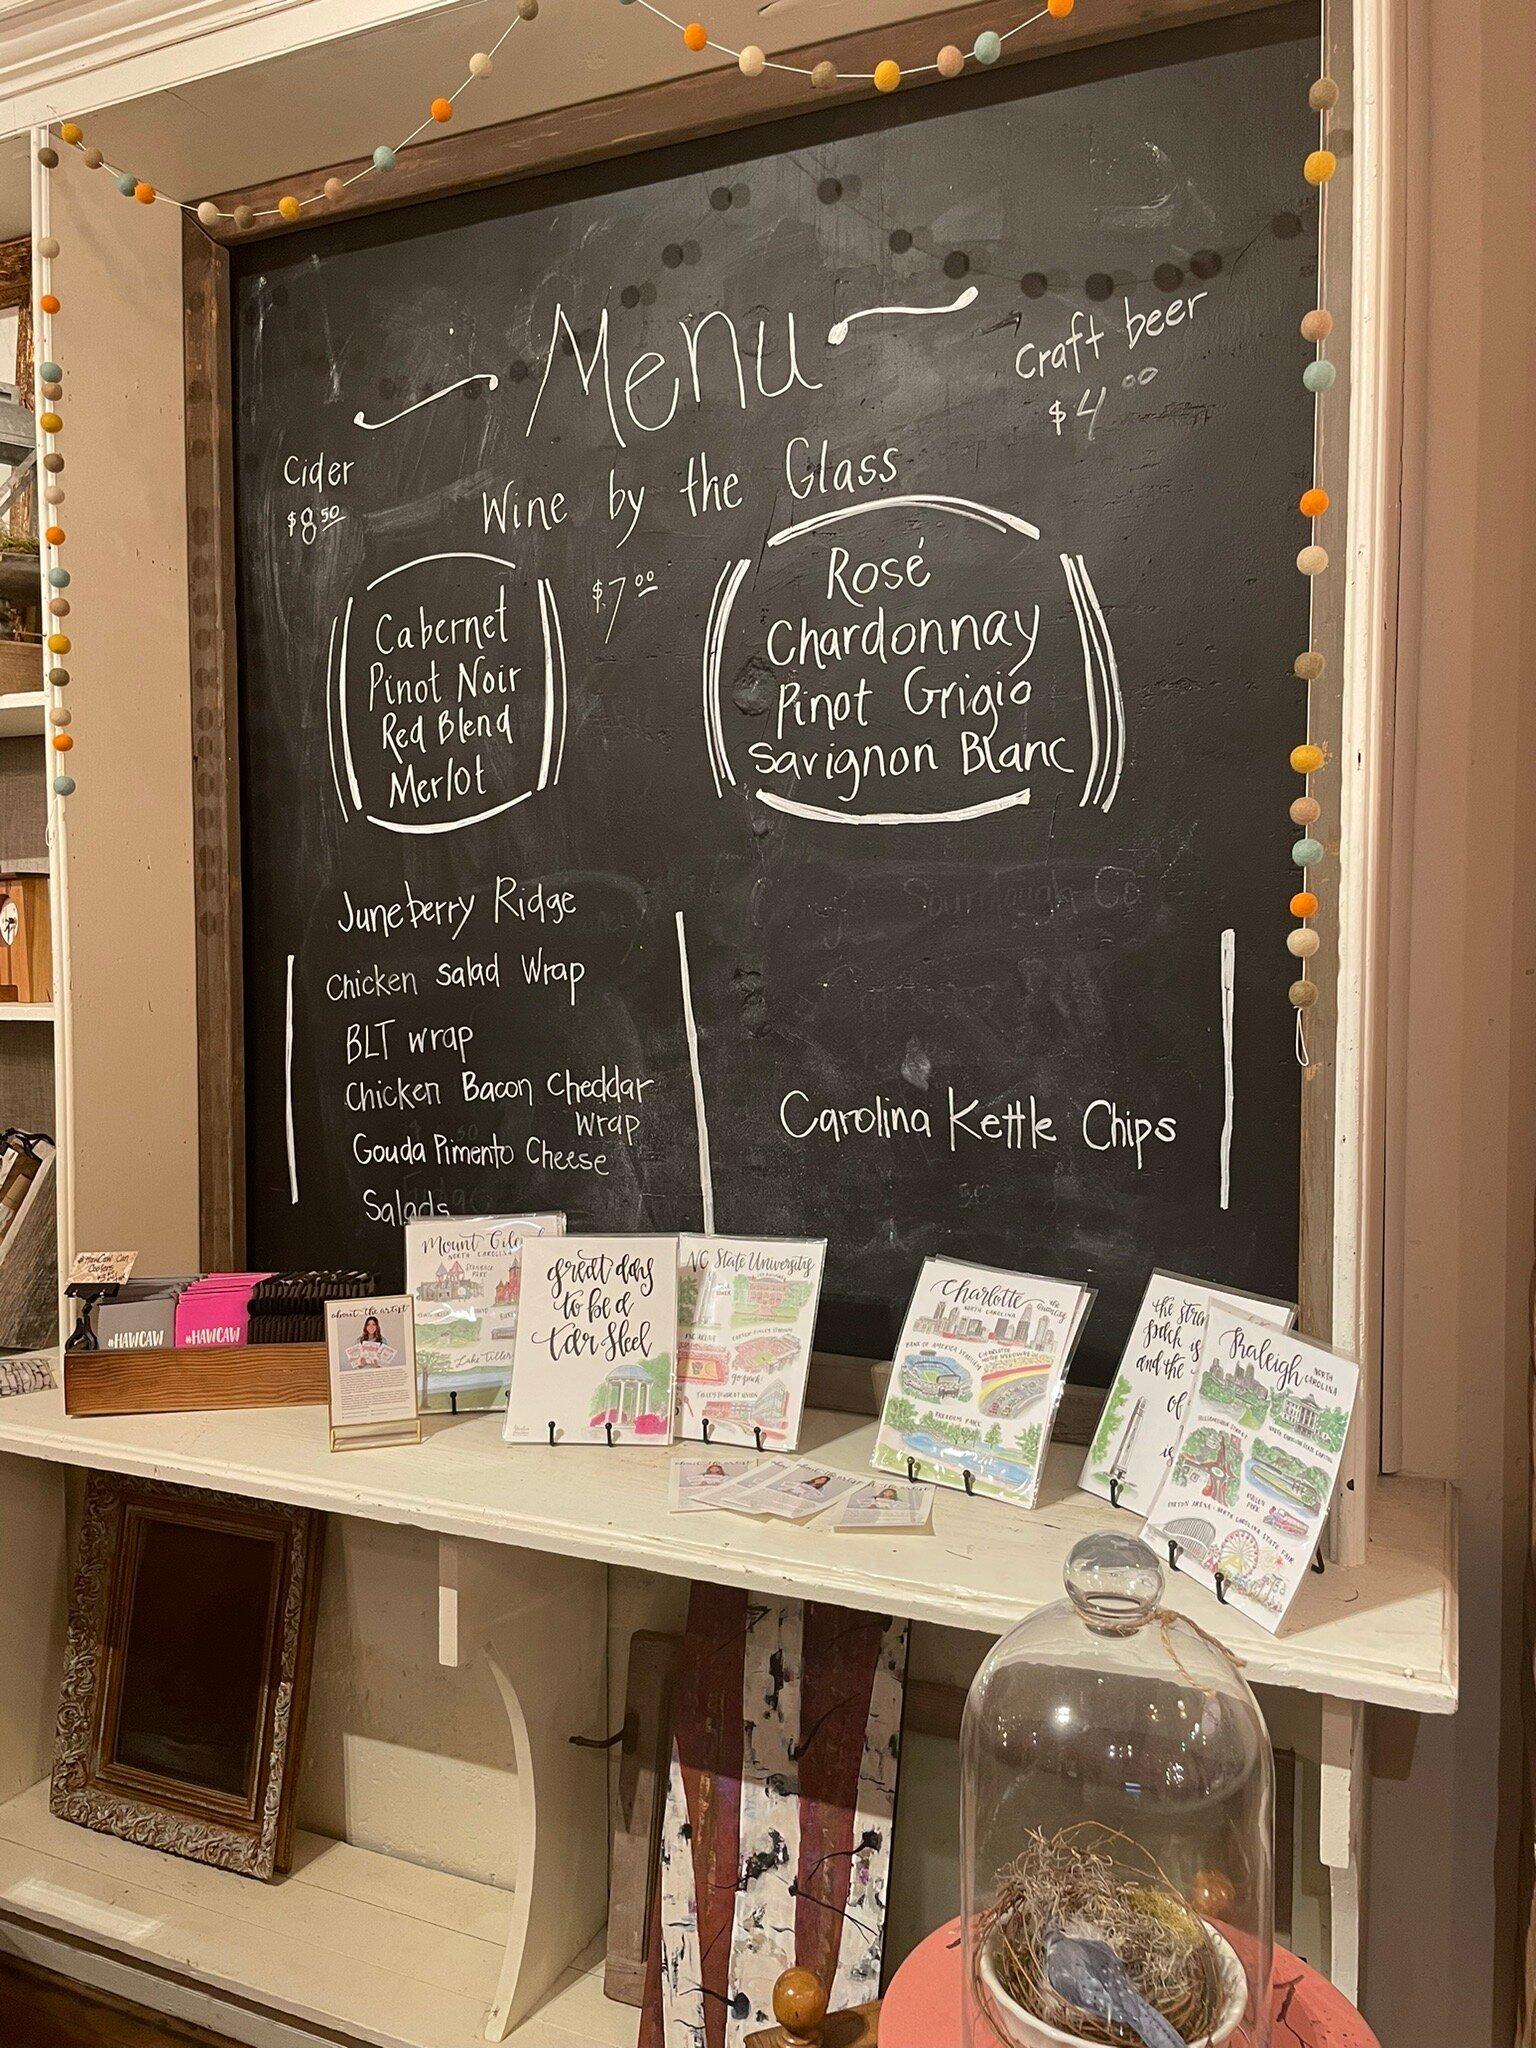 Menu
Craft beer
$4.00
Cider
$8.50
Wine by the Glass
$7.00
Cabernet
Pinot Noir
Red Blend
Merlot
Rosé
Chardonnay
Pinot Grigio
Savignon Blanc
Juneberry Ridge
Chicken Salad Wrap
BLT wrap
Chicken Bacon Cheddar
Wrap
Gouda Pimento Cheese
Salads
Carolina Kettle Chips
#HAWCAW
#HAWCAW
about the artist
Mount
NORTH CAROLINA
great day
to be a
tar heel
NC State University
go pack!
Charlotte
NORTH CAROLINA
BANK OF AMERICA STADIUM
FREEDOM PARK
and the
of
Raleigh
NORTH
CAROLINA
PULLEN
PARK
NORTH CAROLINA STATE FAIR